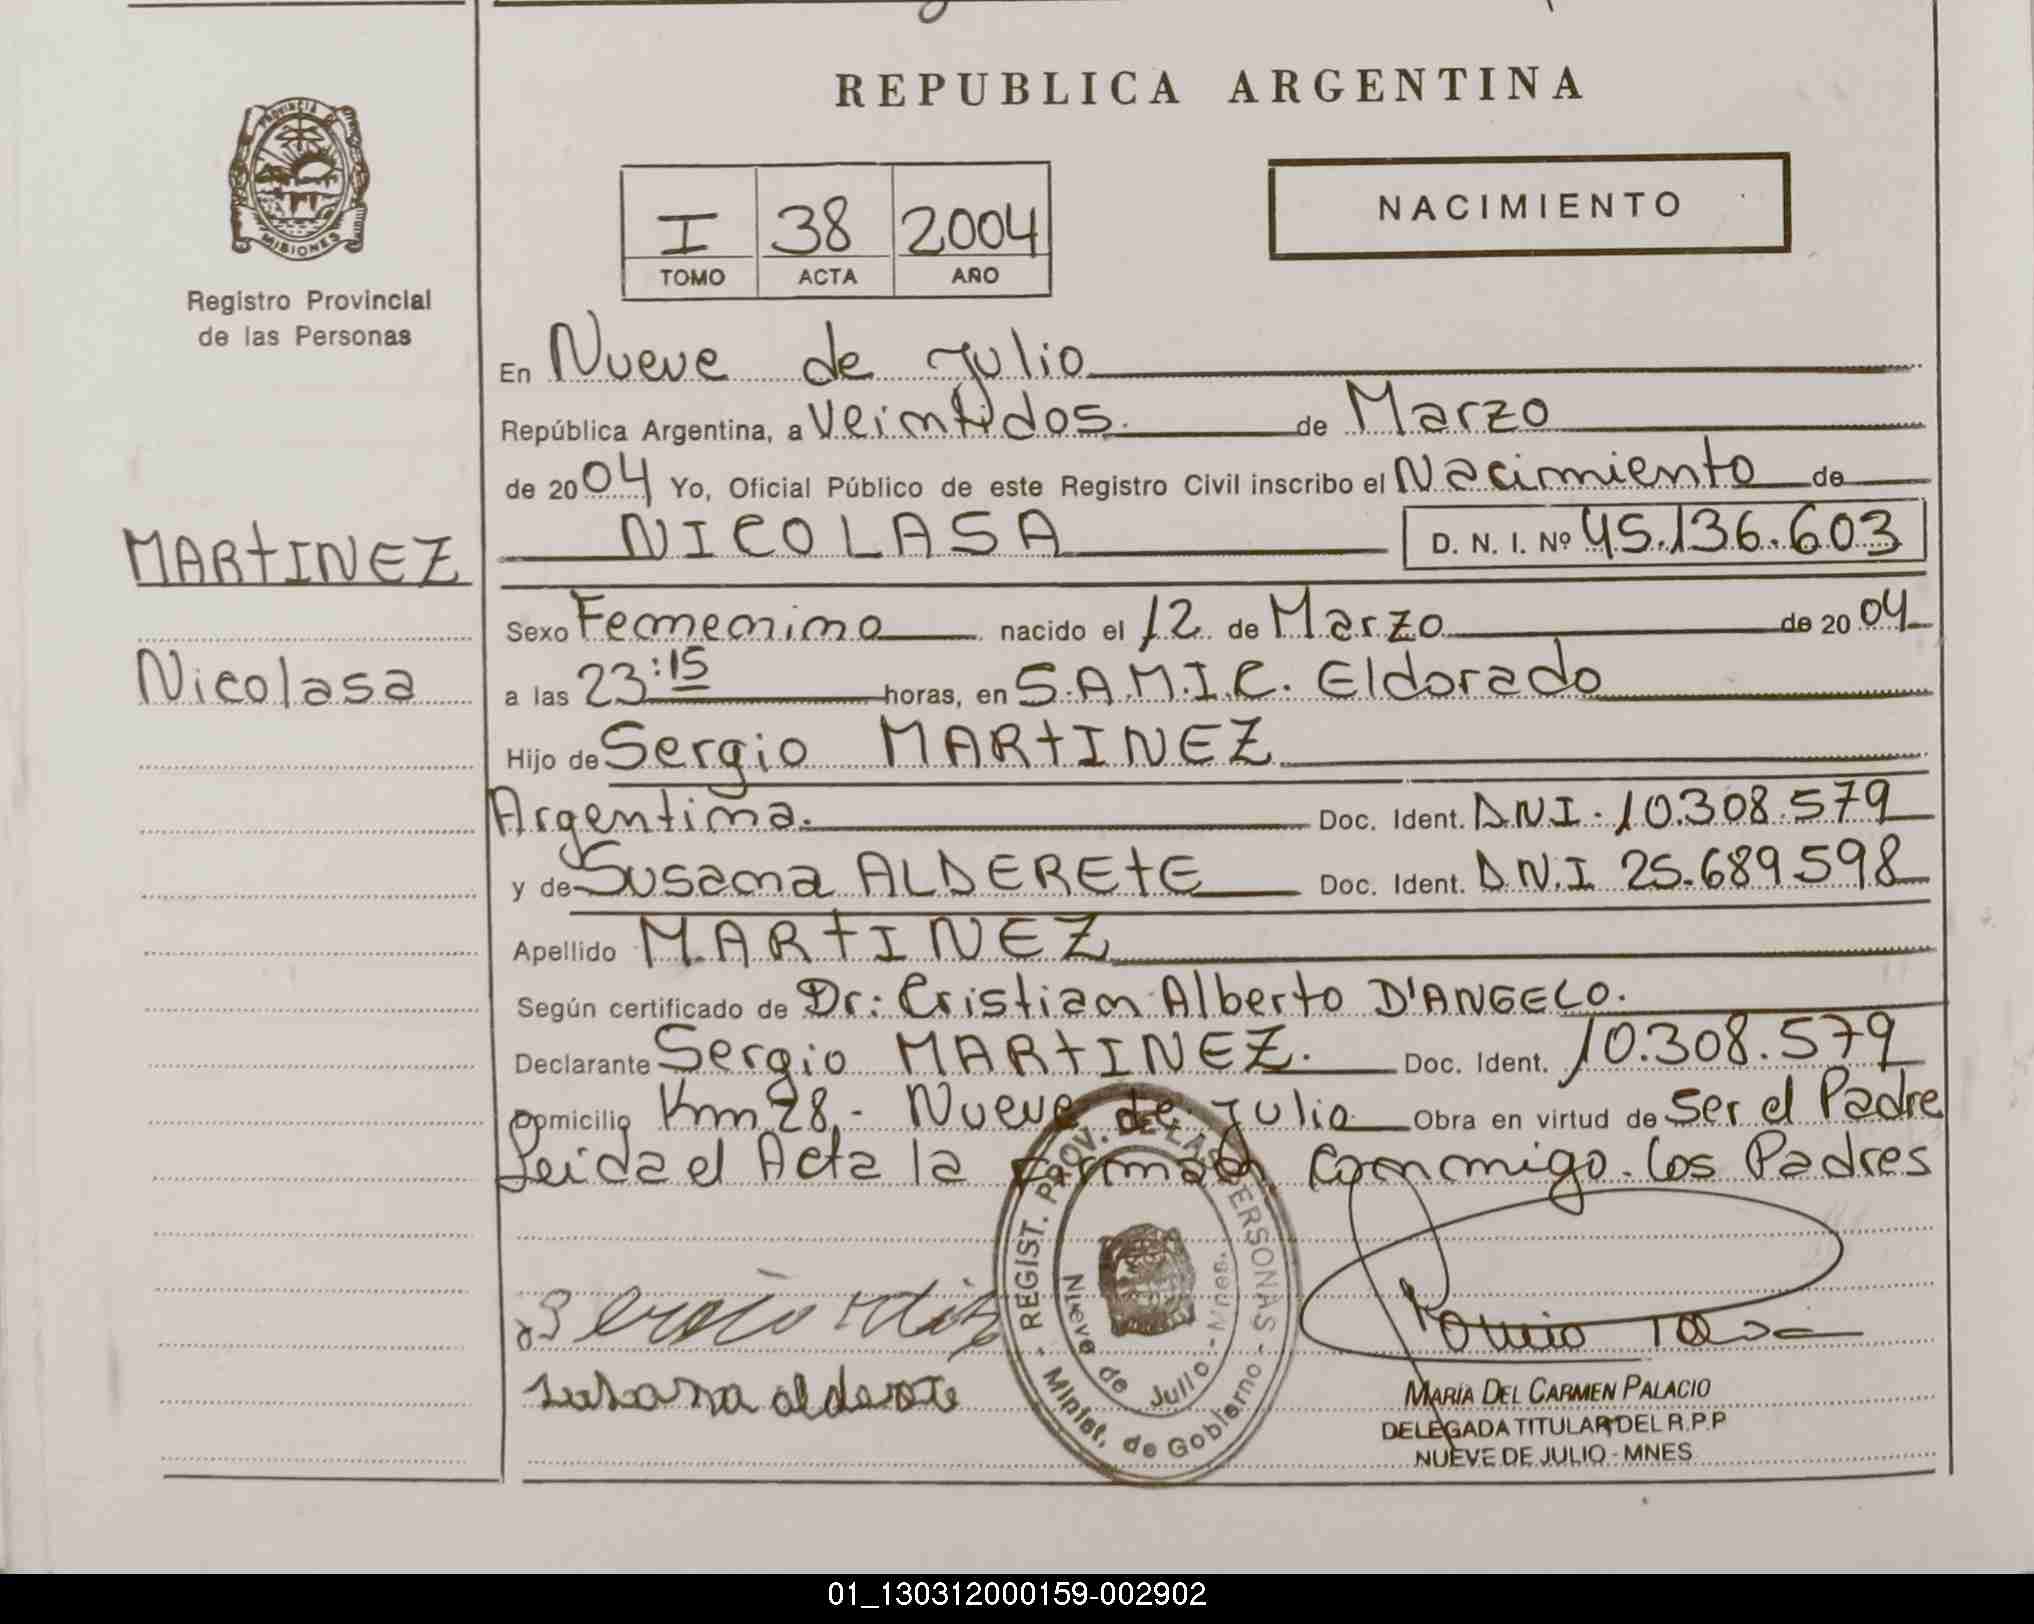 REPUBLICA ARGENTINA
PROVINCIA DE MISIONES
Registro Provincial
de las Personas
I 38 2004
TOMO ACTA AÑO
NACIMIENTO
En Nueve de Julio
República Argentina, a Veintidos. de Marzo
de 2004 Yo, Oficial Público de este Registro Civil inscribo el Nacimiento de
NICOLASA D. N. I. Nº 45.136.603
MARTINEZ
Nicolasa
Sexo Femenino nacido el 12 de Marzo de 2004
a las 23:15 horas, en S.A.M.I.C. Eldorado
Hijo de Sergio MARTINEZ
Argentina. Doc. Ident. D.N.I. 10.308.579
y de Susana ALDERETE Doc. Ident. D.N.I 25.689.598
Apellido MARTINEZ
Según certificado de Dr: Cristian Alberto D'ANGELO.
Declarante Sergio MARTINEZ. Doc. Ident. 10.308.579
Domicilio Km 28 - Nueve de Julio Obra en virtud de Ser el Padre
Leida el Acta la firman conmigo. los Padres
REGIST. PROV. DE LAS PERSONAS - Minist. de Gobierno -
Nueve de Julio - Mnes.
Susana alderete
MARÍA DEL CARMEN PALACIO
DELEGADA TITULAR DEL R.P.P
NUEVE DE JULIO - MNES
01_130312000159-002902